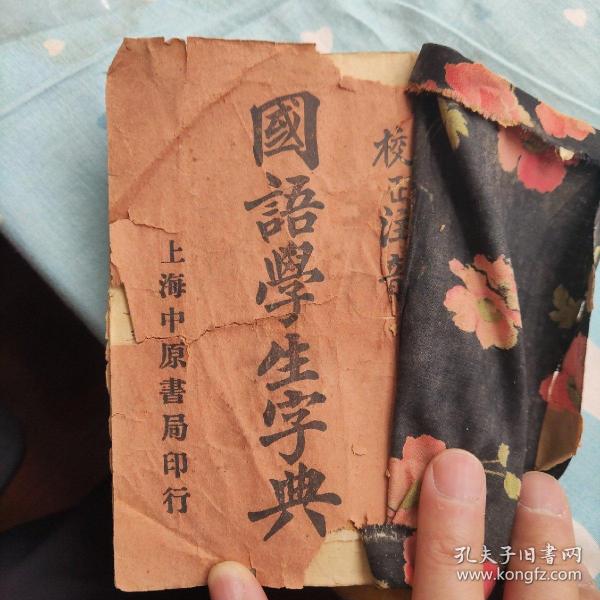 校正注音
國語學生字典
上海中原書局印行
孔夫子旧书网
www.kongfz.com